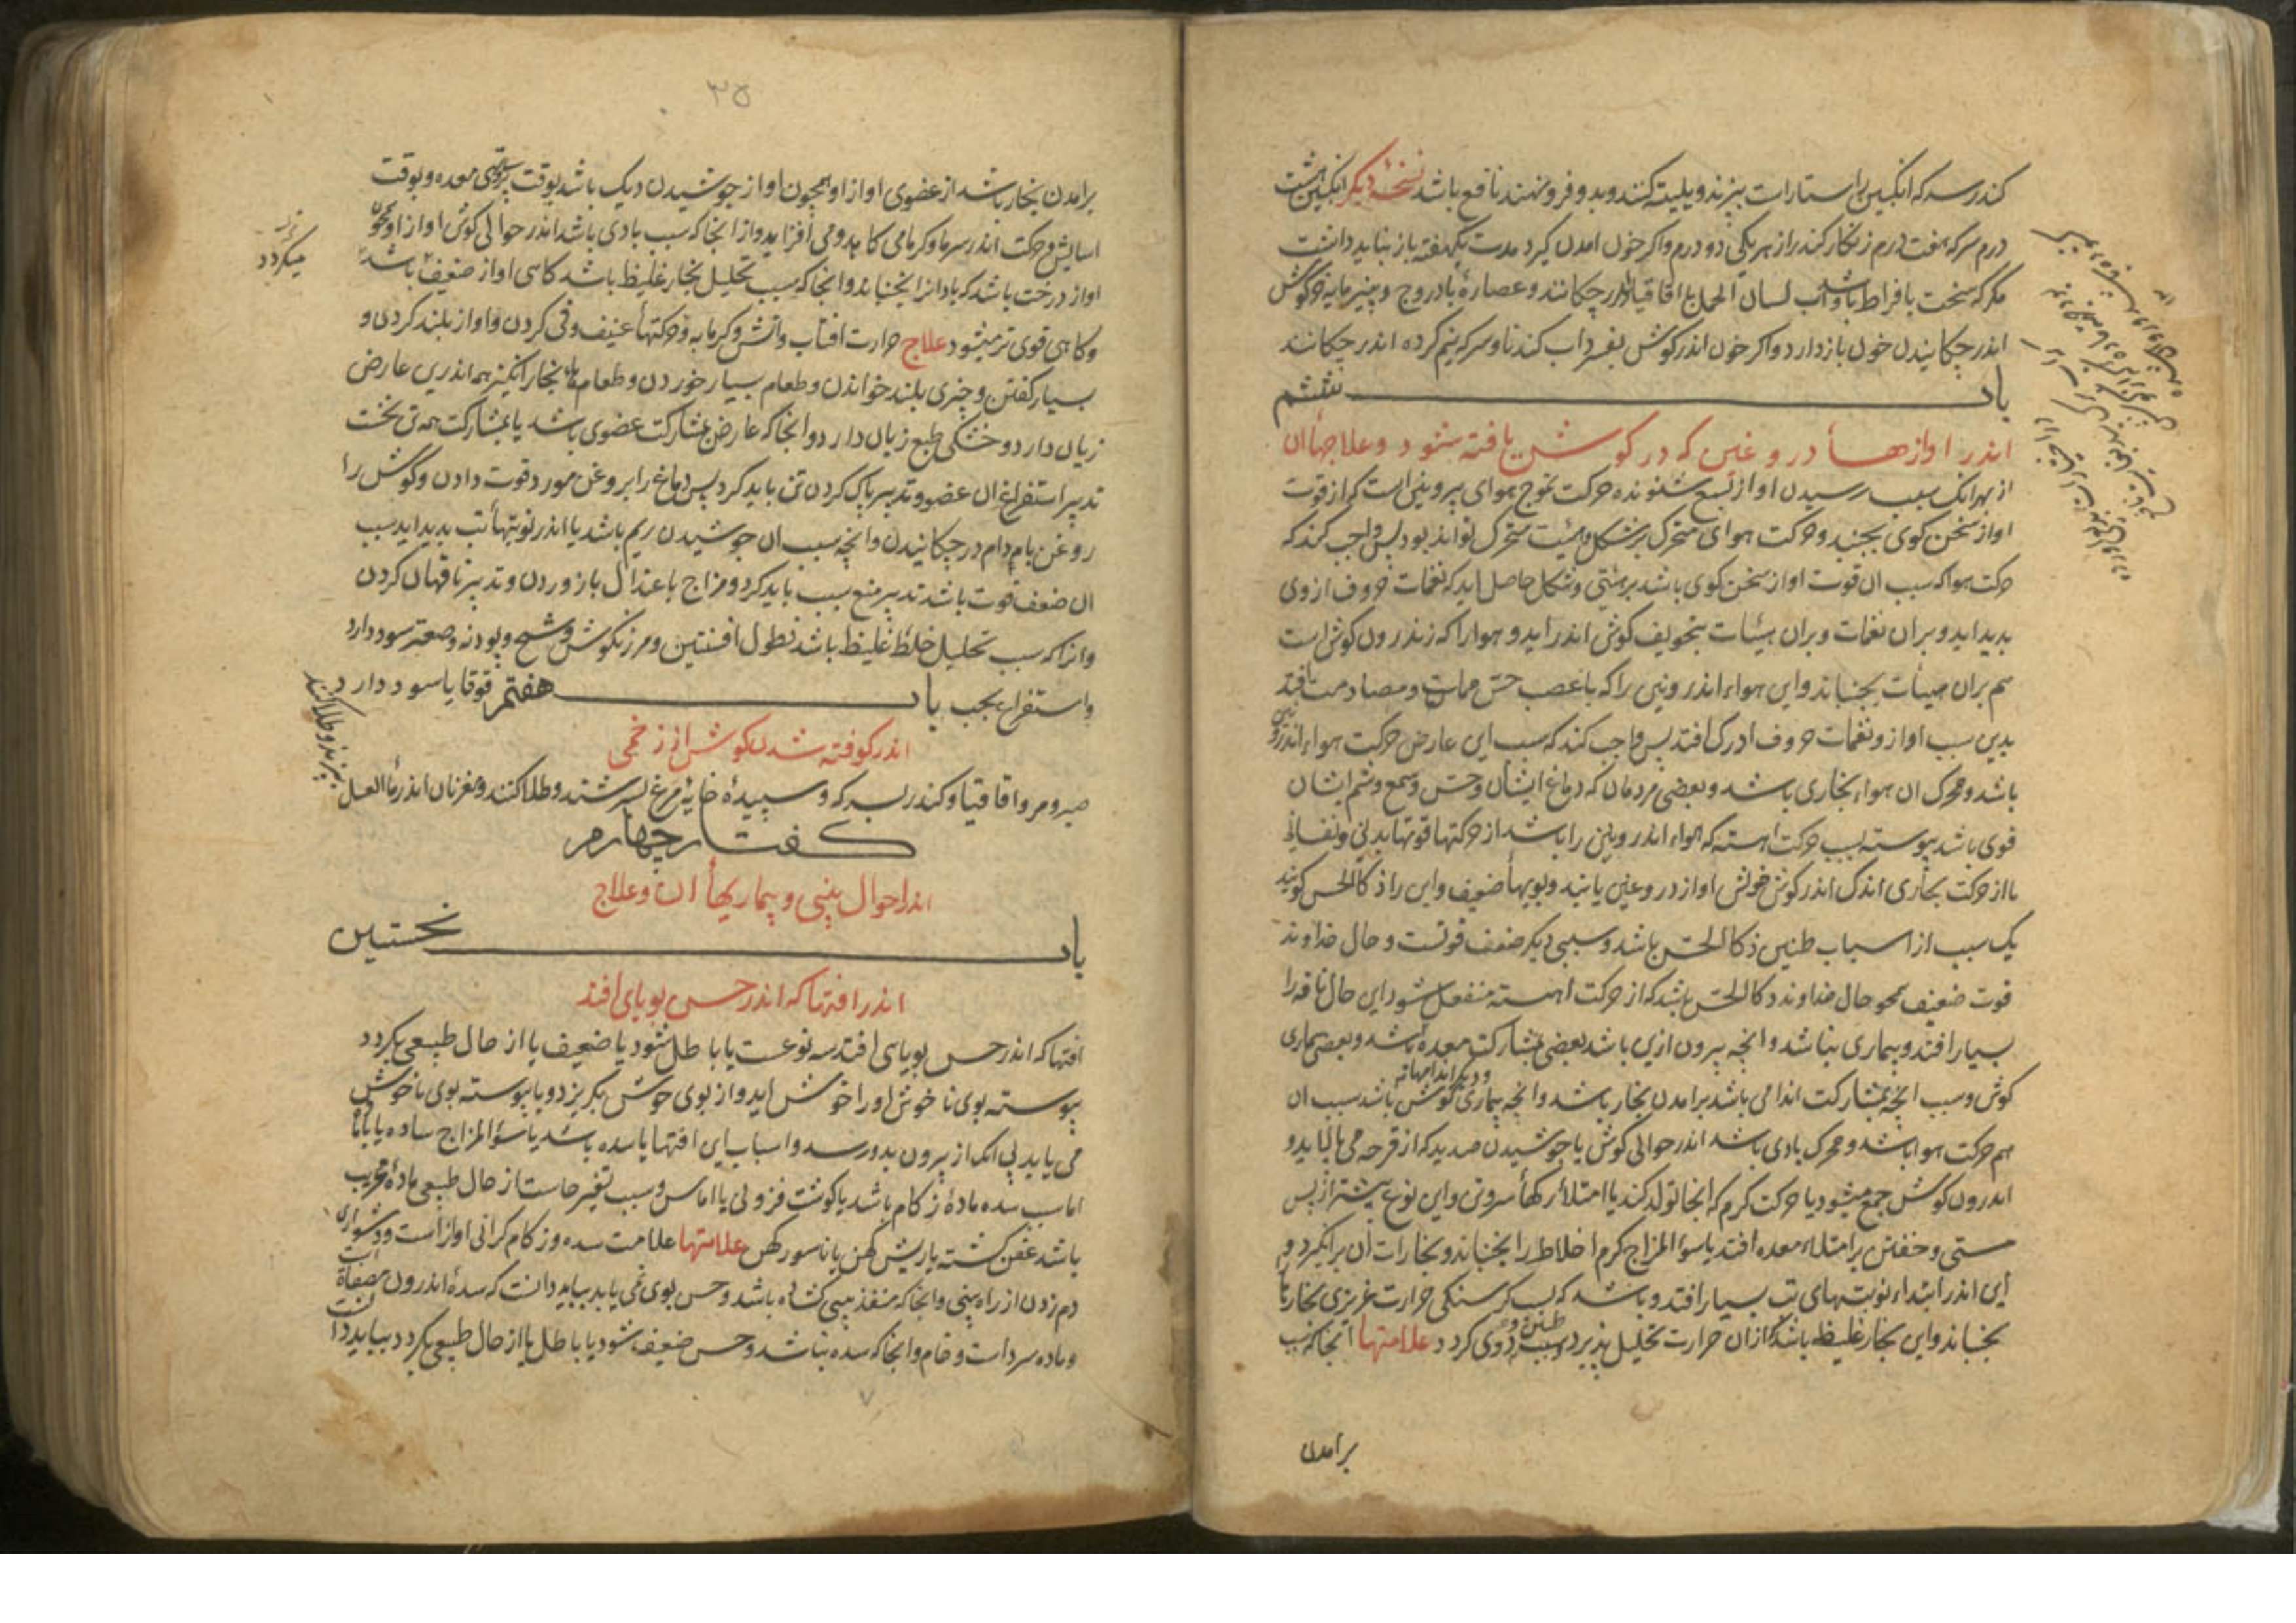 کندر سرکه انکبین راستاراست بپزند و پلیته کنند و بدو فرو نهند نافع باشد نسخهٔ دیکر انکبین هشت
درم سرکه هفت درم زنکار کندر از هر یکی دو درم و اکر خون امدن کیرد مدت یکهفته باز نباید داشت
مکر که سخت بافراط باشد و اب لسان الحمل با اقاقیا اندر چکانند و عصارهٔ بادروج و پنیر مایه خرکوش
اندر چکانیدن خون باز دارد و اکر خون اندر کوش بفسرد اب کندنا و سرکه نیم کرده اندر چکانند
باب ششم
اندر اوازهاء دروغین که در کوش یافته شود و علاجهاء ان
از بهر انک سبب رسیدن اواز بسمع شنونده حرکت تموج هوای بیرونی است که از قوت
اواز سخن کوی بجنبد و حرکت هوای متحرک بر شکل و هیئت متحرک تواند بود پس واجب کند که
حرکت هوا که سبب ان قوت اواز سخن کوی باشد بر هیئتی و شکل حاصل اید که نغمات حروف از وی
پدید اید و بران نغمات و بران هیئات بتجویف کوش اندر اید و هوا را که اندرون کوش است
هم بران هیئات بجنباند و این هواء اندرونی را که با عصب حس مماست و مصادمت افتد
بدین سبب اواز و نغمات حروف ادراک افتد پس واجب کند که سبب این عارض حرکت هواء اندرونی
باشد و محرک ان هواء بخاری باشد و بعضی مردمان که دماغ ایشان و حس و سمع و شم ایشان
قوی باشد پیوسته بسبب حرکت اهسته که هواء اندرونی را باشد از حرکتها قوتها بدنی و نفسانی
یا از حرکت بخاری اندک اندر کوش خویش اواز دروغین یابند و بویها ضعیف و این را ذکاالحس کویند
یک سبب از اسباب طنین ذکاالحس باشد و سببی دیکر ضعف قوتست و حال خداوند
قوت ضعیف همچو حال خداوند ذکاالحس باشد که از حرکت اهسته منفعل شود این حال ناقه را
بسیار افتد و بیماری نباشد و انچه بیرون ازین باشد بعضی بمشارکت معده باشد و بعضی بیماری
و دیکر اندامها
کوش و سبب انچه بمشارکت اندامی باشد برامدن بخار باشد و انچه بیماری کوش باشد سبب ان
هم حرکت هوا باشد و محرک بادی باشد اندر حوالی کوش یا جوشیدن صدید که از قرحه می پالاید و
اندرون کوش جمع میشود یا حرکت کرم که انجا تولد کند یا امتلاء رکهاء سر و تن و این نوع بیشتر از پس
مستی و خفتن بر امتلاء معده افتد یا سوء المزاج کرم اخلاط را بجنباند و بخارات ان برانکیزد و
این اندر ابتداء نوبتهای تب بسیار افتد و باشد که بسبب کرسنکی حرارت غریزی بخار را
بجنباند و این بخار غلیظ باشد که ازان حرارت تحلیل پذیرد و سبب طنین و دوی کردد علامتها انجا که سبب
برامدن
۳۵
برامدن بخار باشد از عضوی اواز او همچون اواز جوشیدن دیک باشد بوقت پری و تهی معده و بوقت
اسایش و حرکت اندر سرما و کرما می کاهد و می افزاید و از انجا که سبب بادی باشد اندر حوالی کوش اواز او همچون
اواز درخت باشد که باد انرا بجنباند و انجا که سبب تحلیل بخار غلیظ باشد کاهی اواز ضعیف باشد
و کاهی قوی تر میشود علاج حرارت افتاب و اتش و کرمابه و حرکتهاء عنیف و قی کردن و اواز بلند کردن و
بسیار کفتن و چیزی بلند خواندن و طعام بسیار خوردن و طعامهاء بخار انکیز هم اندرین عارض
زیان دارد و خشکی طبع زیان دارد و انجا که عارض بمشارکت عضوی باشد یا بمشارکت همه تن نخست
تدبیر استفراغ ان عضو و تدبیر پاک کردن تن باید کرد پس دماغ را بروغن مورد قوت دادن و کوش را
روغن بادام در چکانیدن و انچه سبب ان جوشیدن ریم باشد یا اندر نوبتهاء تب پدید اید سبب
ان ضعف قوت باشد تدبیر منع سبب باید کرد و مزاج باعتدال باز اوردن و تدبیر ناقهان کردن
و انرا که سبب تحلیل خلط غلیظ باشد نطول افسنتین و مرزنکوش و شیح و پودنه و صعتر سود دارد
و استفراغ بحب قوقایا سود دارد
باب هفتم
اندر کوفته شدن کوش از زخمی
صبر و مر و اقاقیا و کندر بسرکه و سپیدهٔ خایهٔ مرغ بسرشند و طلا کنند و مغز نان اندر ماء العسل
بپزند و طلا کنند
کفتار چهارم
اندر احوال بینی و بیماریهاء ان و علاج
باب نخستین
اندر افتها که اندر حس بویایی افتد
افتها که اندر حس بویایی افتد سه نوعست یا باطل شود یا ضعیف یا از حال طبیعی بکردد
پیوسته بوی ناخوش او را خوش اید و از بوی خوش بکریزد و یا پیوسته بوی ناخوش
می یابد بی انک از بیرون بدو رسد و اسباب این افتها یا سده باشد یا سوء المزاج ساده یا با ماده
اما سبب سده مادهٔ زکام باشد یا کوشت فزونی یا اماس و سبب تغیر حاست از حال طبیعی مادهٔ
باشد عفن کشته یا ریش کهن یا ناسور کهن علامتها علامت سده و زکام کرانی اواز است و دشواری
دم زدن از راه بینی و انجا که منفذ بینی کشاده باشد و حس بوی نمی یابد بباید دانست که سده اندرون مصفاة است
و ماده سرد است و خام و انجا که سده نباشد و حس ضعیف شود یا باطل یا از حال طبیعی بکردد بباید دانست
میکردد